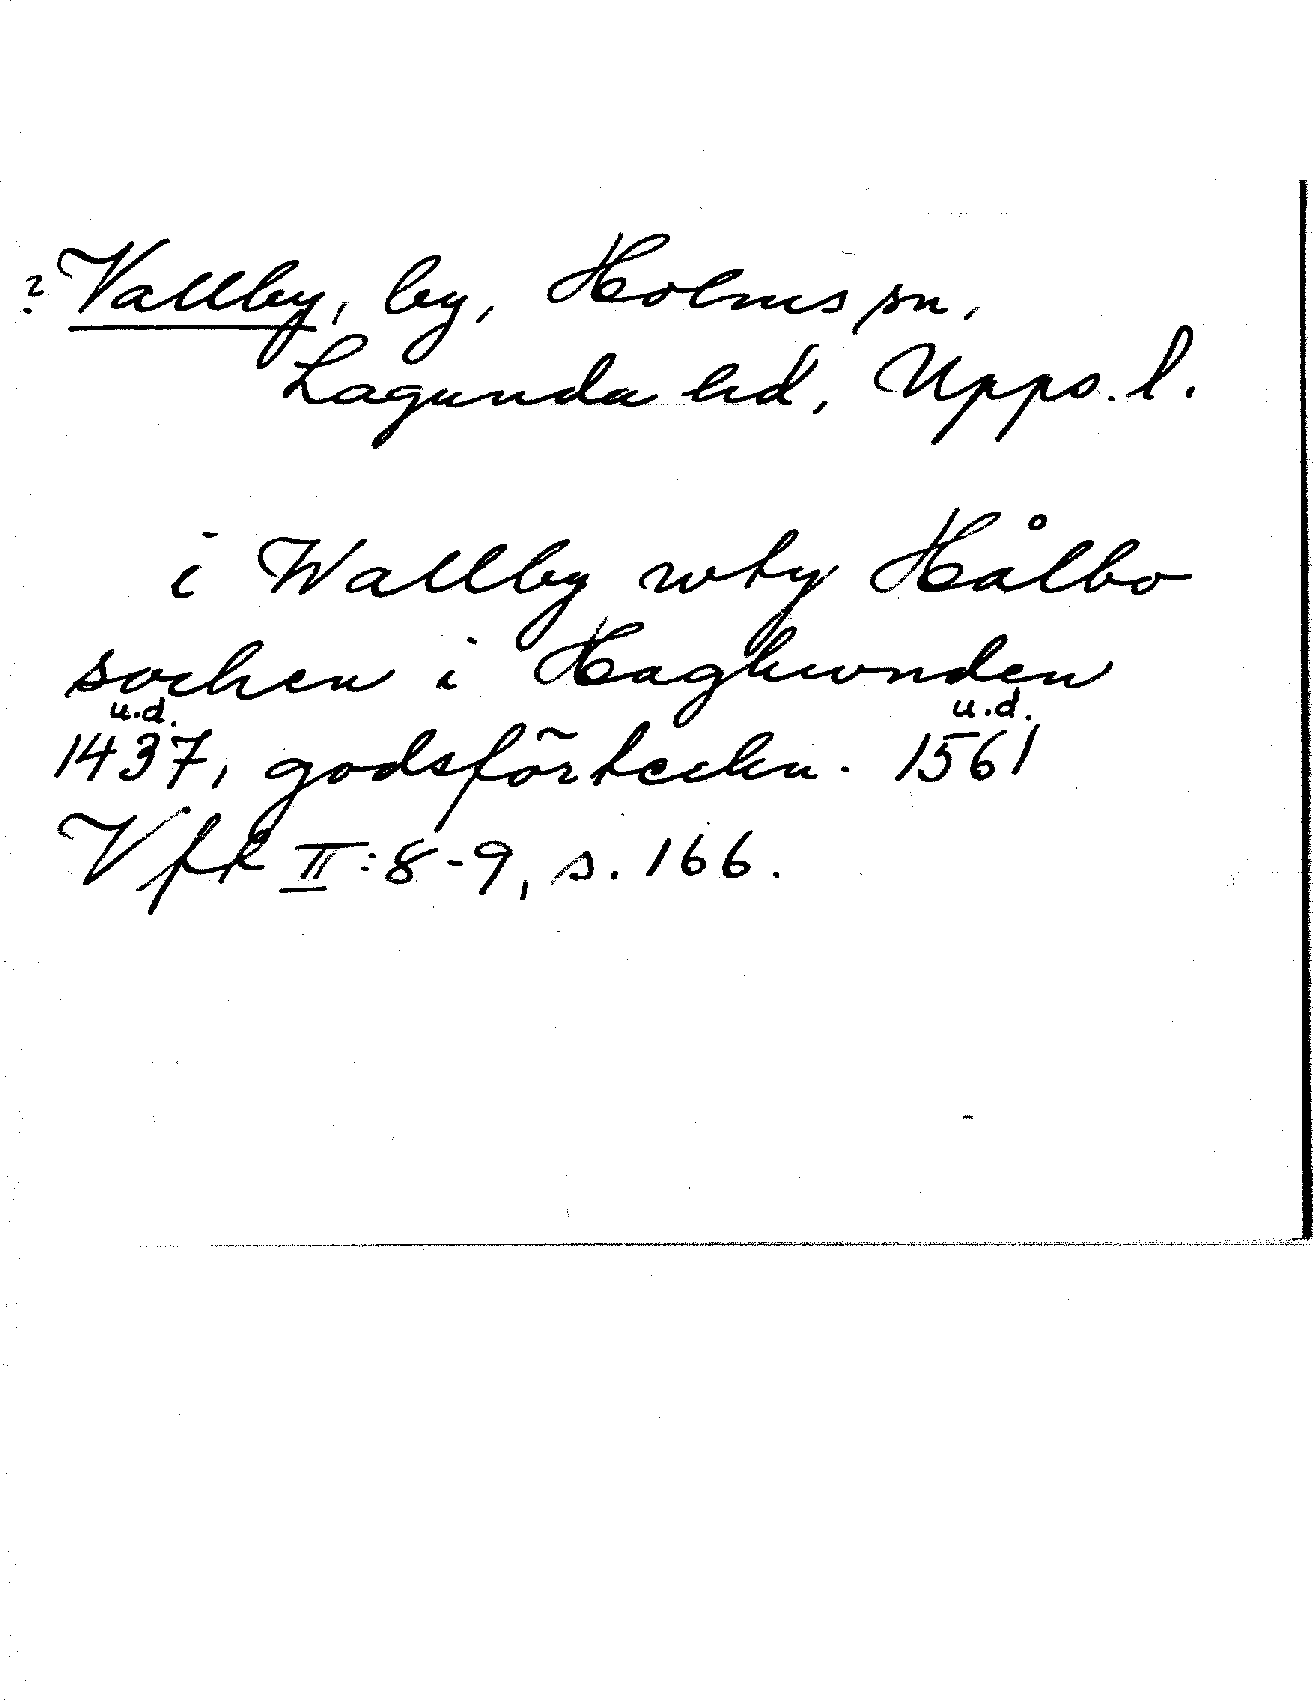 ? Vallby, by, Holms sn,
Lagunda hd, Upps. l.
i Wallby wty Hålbo
sochen i Haghwnden
u.d. u.d.
1437, godsförteckn. 1561
Vfr II:8-9, s. 166.